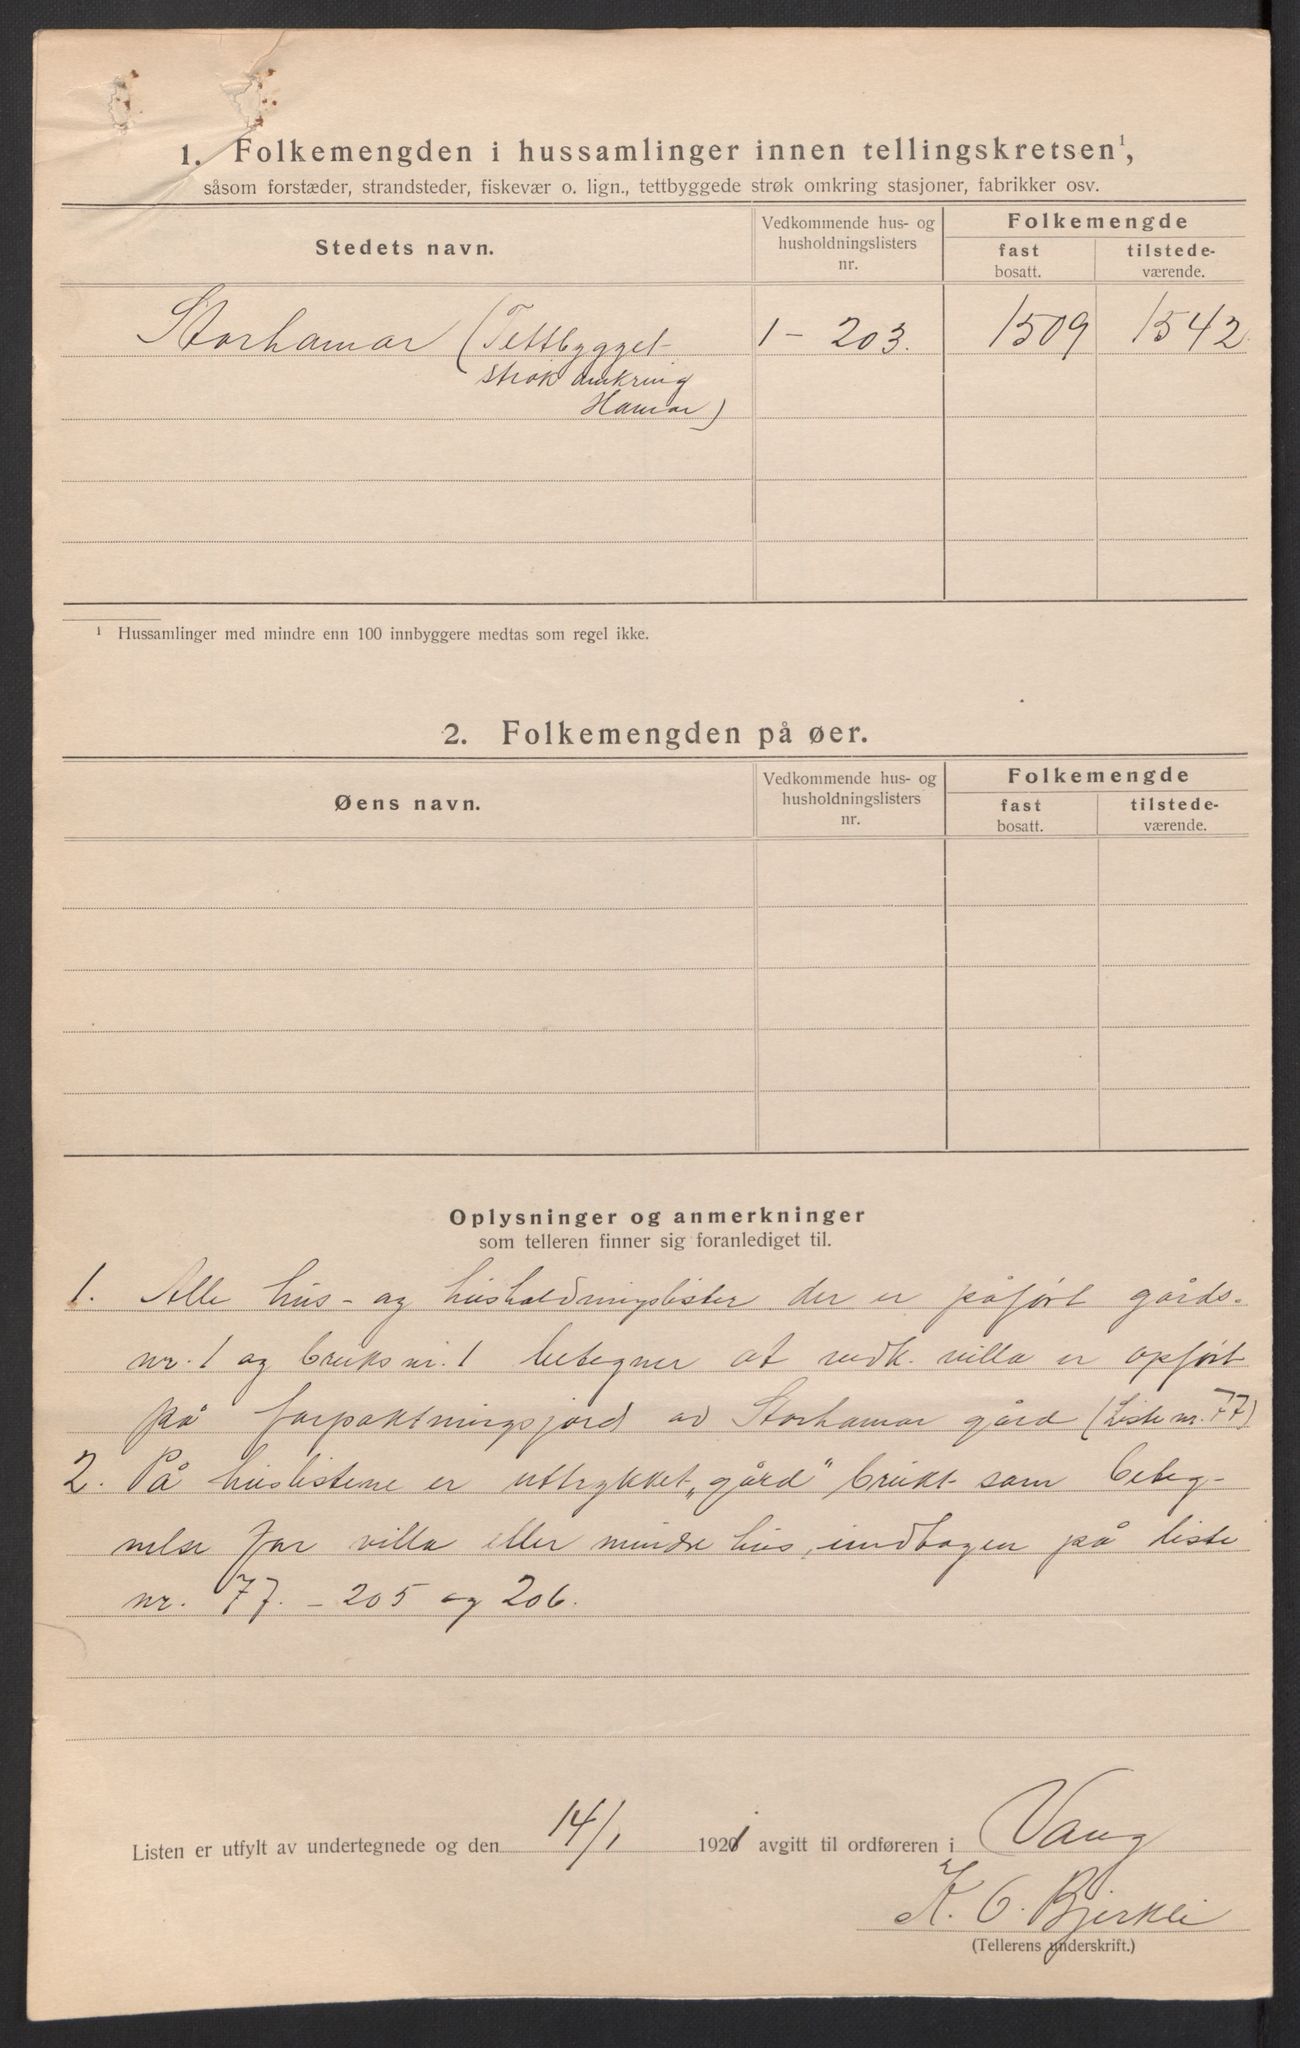 1. Folkemengden i hussamlinger innen tellingskretsen¹,
såsom forstæder, strandsteder, fiskevær o. lign., tettbyggede strøk omkring stasjoner, fabrikker osv.
Stedets navn.
Vedkommende hus- og
husholdningslisters
nr.
Folkemengde
fast
bosatt.
tilstede-
værende.
Storhamar (Tettbygget 1 - 203. 1509 1542
strøk omkring
Hamar)
¹ Hussamlinger med mindre enn 100 innbyggere medtas som regel ikke.
2. Folkemengden på øer.
Øens navn.
Vedkommende hus- og
husholdningslisters
nr.
Folkemengde
fast
bosatt.
tilstede-
værende.
Oplysninger og anmerkninger
som telleren finner sig foranlediget til.
1. Alle hus- og husholdningslister der er påført gårds-
nr. 1 og bruksnr. 1 betegner at vedk. villa er opført
på forpaktningsjord av Storhamar gård (Liste nr. 77)
2. På huslistene er uttrykket „gård" brukt som beteg-
nelse for villa eller mindre hus, undtagen på liste
nr. 77. - 205 og 206.
Listen er utfylt av undertegnede og den 14/1 1921 avgitt til ordføreren i Vang
K. O. Bjerkli
(Tellerens underskrift.)